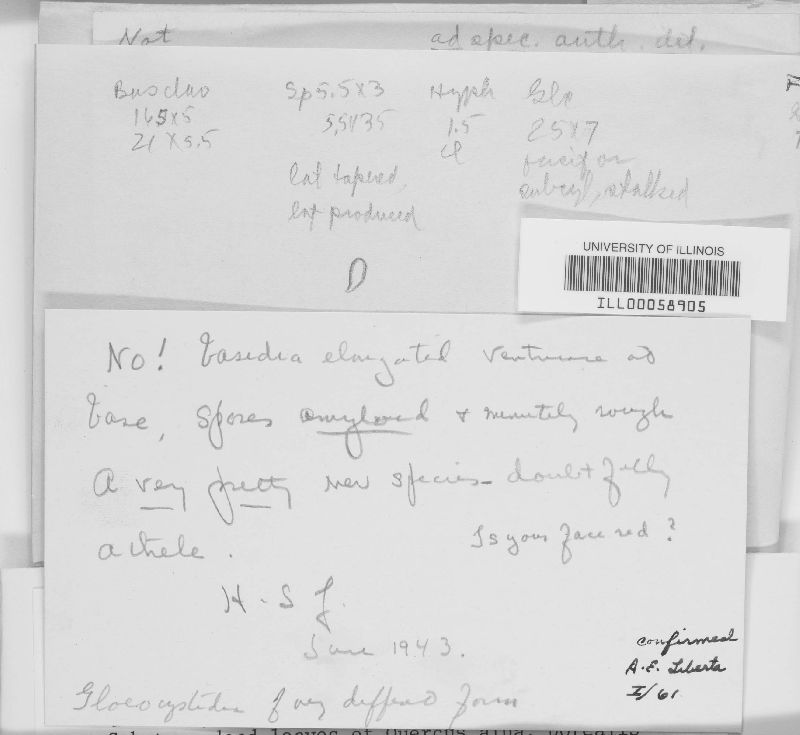 Not ad spec. auth. det.
Basidia Sp 5.5x3 Hyph Glo
165x5 5,5x35 1.5 25x7
21 x 5.5 cl fusif or
lat tapered, subcyl, stalked
lat produced
UNIVERSITY OF ILLINOIS
ILL00058905
No! Basidia elongated ventricose at
base, spores amyloid & minutely rough
A very pretty new species - doubtfully
athele.
Is your face red?
H. S. J.
June 1943.
confirmed
A.E. Liberta
I/61
Gloeocystidia of very different form
leaves of Quercus alba,